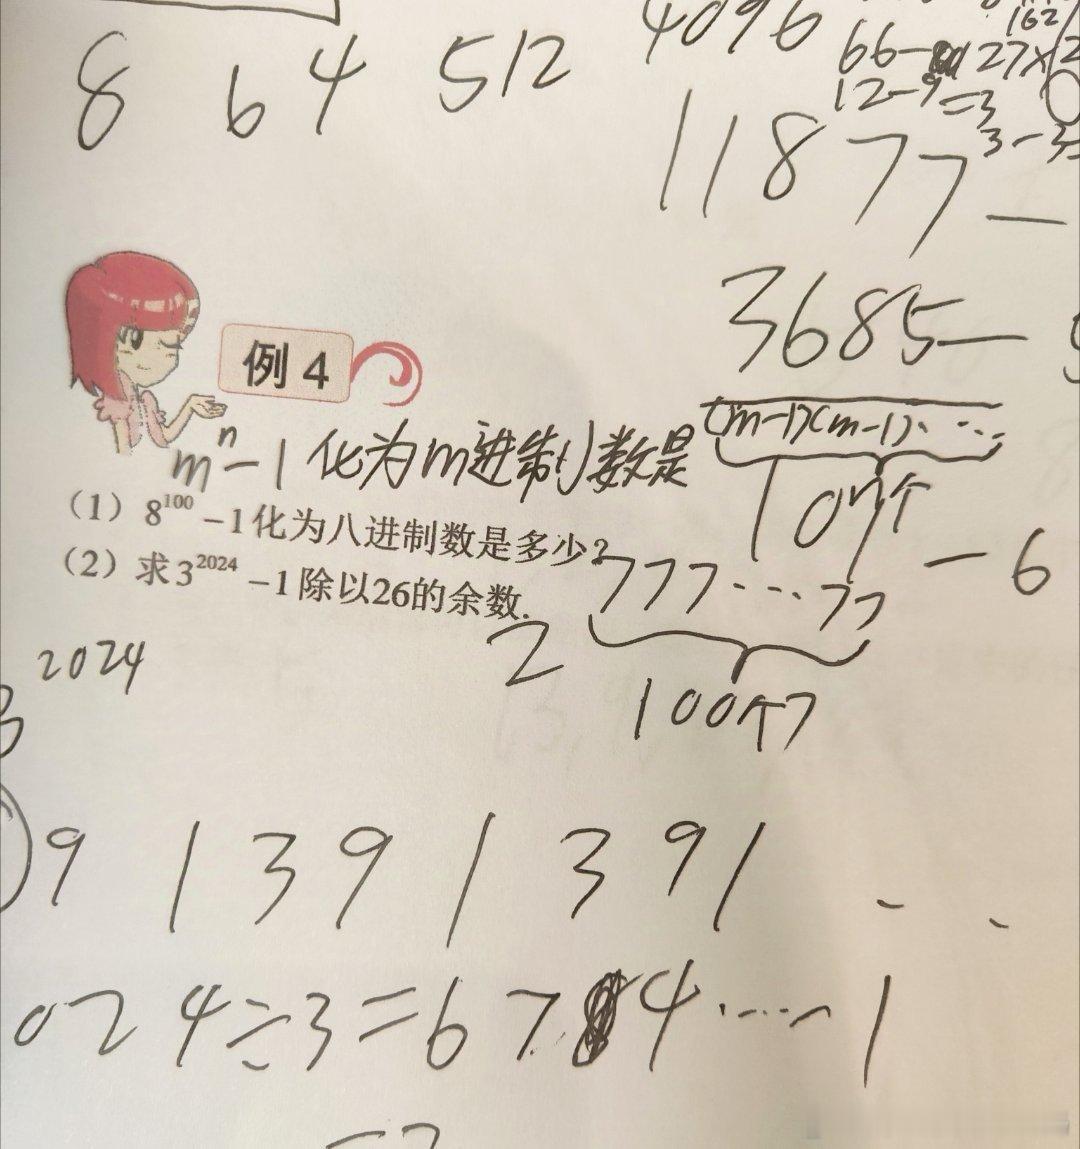 4096
162
8 64 512
66- 27×2
12-9=3
3-3
11877-
3685-
例4
mⁿ-1化为m进制数是(m-1)(m-1)……
10n个
(1) 8¹⁰⁰-1化为八进制数是多少?
(2) 求3²⁰²⁴-1除以26的余数.
777…77
-6
2
100个7
2024
3
9 1 3 9 1 3 9 1 ..
024÷3=674……1